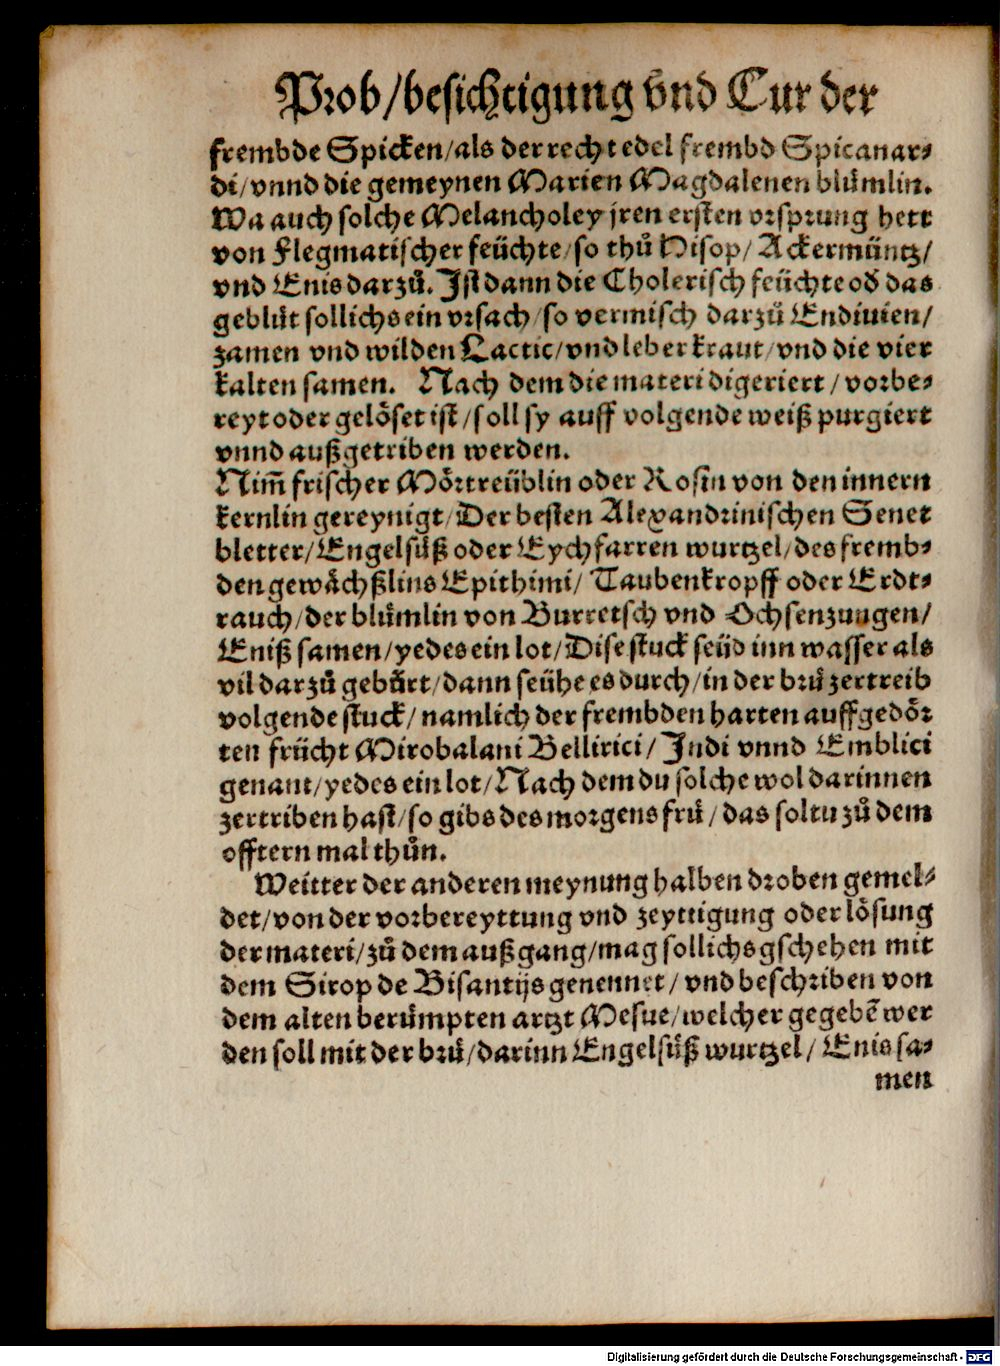 Prob/besichtigung vnd Cur der
frembde Spicken/als der recht edel frembd Spicanar⸗
di/vnnd die gemeynen Marien Magdalenen blůmlin.
Wa auch solche Melancholey jren ersten vrsprung hett
von Flegmatischer feüchte/so thů Hisop/Ackermüntz/
vnd Enis darzů. Ist dann die Cholerisch feüchte od̕ das
geblůt sollichs ein vrsach/so vermisch darzů Endiuien/
zamen vnd wilden Lactic/vnd leberkraut/vnd die vier
kalten samen. Nach dem die materi digeriert/vorbe⸗
reyt oder gelöset ist/soll sy auff volgende weiß purgiert
vnnd außgetriben werden.
Nim̃ frischer Mörtreüblin oder Rosin von den innern
kernlin gereynigt/Der besten Alexandrinischen Senet
bletter/Engelsůß oder Eychfarren wurtzel/des fremb⸗
den gewächßlins Epithimi/Taubenkropff oder Erdt⸗
rauch/der blůmlin von Burretsch vnd Ochsenzungen/
Eniß samen/yedes ein lot/Dise stuck seüd inn wasser als
vil darzů gebürt/dann seühe es durch/in der brů zertreib
volgende stuck/namlich der frembden harten auffgedör
ten frücht Mirobalani Bellirici/Indi vnnd Emblici
genant/yedes ein lot/Nach dem du solche wol darinnen
zertriben hast/so gibs des morgens frů/das soltu zů dem
offtern mal thůn.
Weitter der anderen meynung halben droben gemel⸗
det/von der vorbereyttung vnd zeyttigung oder lösung
der materi/zů dem außgang/mag sollichs gschehen mit
dem Sirop de Bisantijs genennet/vnd beschriben von
dem alten berůmpten artzt Mesue/welcher gegebē wer
den soll mit der brů/darinn Engelsůß wurtzel/Enis sa⸗
men
Digitalisierung gefördert durch die Deutsche Forschungsgemeinschaft - DFG